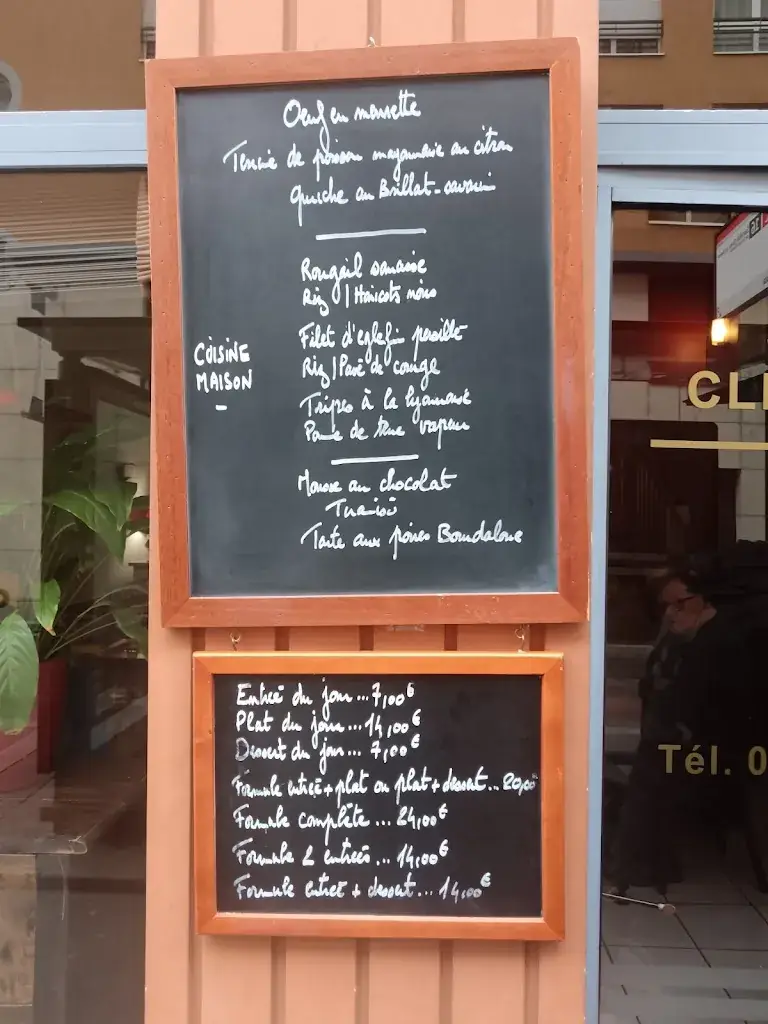 Oeuf en meurette
Terrine de poisson mayonnaise au citron
Quiche au Brillat-savarin
Rougail saucisse
Riz | Haricots noirs
Filet d'eglefin persillé
Riz | Purée de courge
CUISINE
MAISON
Tripes à la lyonnaise
Pomme de terre vapeur
Mousse au chocolat
Tiramisù
Tarte aux poires Bourdaloue
Entrée du jour ... 7,00€
Plat du jour ... 14,00€
Dessert du jour ... 7,00€
Formule entrée + plat ou plat + dessert ... 20,00
Formule complète ... 24,00€
Formule 2 entrées ... 14,00€
Formule entrée + dessert ... 14,00€
CLI
Tél. 0